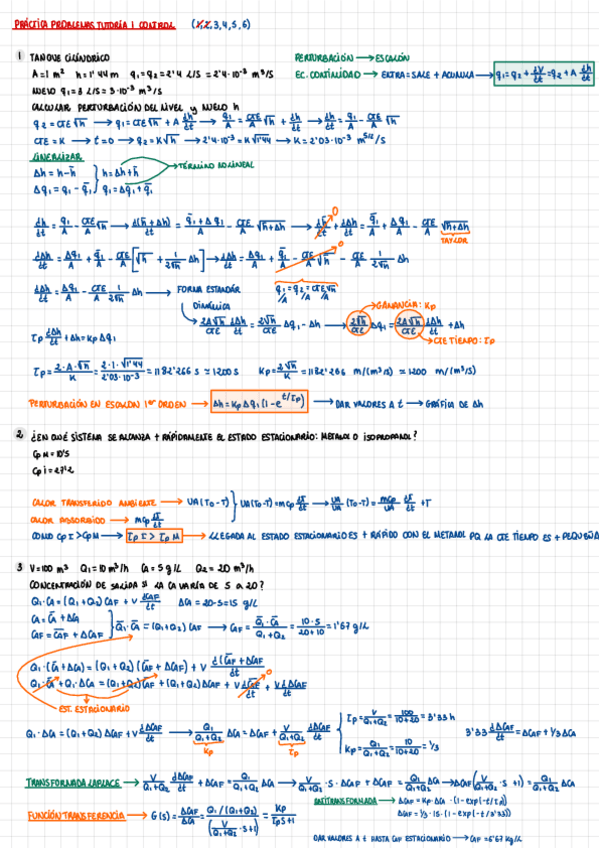 PRÁCTICA PROBLEMAS TUTORÍA 1 CONTROL (1,2,3,4,5,6)
1 TANQUE CILÍNDRICO
PERTURBACIÓN → ESCALÓN
A=1 m² h=1'44 m q₁=q₂=2'4 L/S = 2'4·10⁻³ m³/s
EC. CONTINUIDAD → ENTRA=SALE + ACUMULA → q₁=q₂+dV/dt=q₂+A dh/dt
NUEVO q₁=3 L/S = 3·10⁻³ m³/s
CALCULAR PERTURBACIÓN DEL NIVEL Y NUEVO h
q₂=CTE√h → q₁=CTE√h + A dh/dt → q₁/A = CTE/A √h + dh/dt → dh/dt = q₁/A - CTE/A √h
CTE=K → t=0 → q₂=K√h → 2'4·10⁻³=K√1'44 → K=2'03·10⁻³ m^5/2/s
LINEALIZAR
→ TÉRMINO NO LINEAL
Δh=h-h̄ } h=Δh+h̄
Δq₁=q₁-q̄₁ } q₁=Δq₁+q̄₁
dh/dt = q₁/A - CTE/A √h → d(h̄+Δh)/dt = (q̄₁+Δq₁)/A - CTE/A √(h̄+Δh) → dh̄/dt + dΔh/dt = q̄₁/A + Δq₁/A - CTE/A √(h̄+Δh)
0
TAYLOR
dΔh/dt = Δq₁/A + q̄₁/A - CTE/A [√h̄ + 1/2√h̄ Δh] → dΔh/dt = Δq₁/A + q̄₁/A - CTE/A √h̄ - CTE/A 1/2√h̄ Δh
0
dΔh/dt = Δq₁/A - CTE/A 1/2√h̄ Δh → FORMA ESTANDAR
q₁/A = q₂/A = CTE√h/A
DINÁMICA
→ GANANCIA: Kp
2A√h̄/CTE dΔh/dt = 2√h̄/CTE Δq₁ - Δh → 2√h̄/CTE Δq₁ = 2A√h̄/CTE dΔh/dt + Δh
τp dΔh/dt + Δh = Kp Δq₁
→ CTE TIEMPO: τp
τp = 2·A·√h̄/K = 2·1·√1'44/2'03·10⁻³ = 1182'266 s ≈ 1200 s Kp = 2√h̄/K = 1182'266 m/(m³/s) ≈ 1200 m/(m³/s)
PERTURBACIÓN EN ESCALÓN 1er ORDEN → Δh=Kp Δq₁(1-e^t/τp) → DAR VALORES A t → GRÁFICA DE Δh
2 ¿EN QUÉ SISTEMA SE ALCANZA + RÁPIDAMENTE EL ESTADO ESTACIONARIO: METANOL O ISOPROPANOL?
Cp M=10'5
Cp i=27'2
CALOR TRANSFERIDO AMBIENTE → UA(T₀-T) } UA(T₀-T)=mCp dT/dt → UA/UA (T₀-T) = mCp/UA dT/dt + T
CALOR ABSORBIDO → mCp dT/dt
COMO Cp I > Cp M → τp I > τp M → LLEGADA AL ESTADO ESTACIONARIO ES + RÁPIDO CON EL METANOL PQ LA CTE TIEMPO ES + PEQUEÑA
3 V=100 m³ Q₁=10 m³/h CA=5 g/L Q₂=20 m³/h
CONCENTRACIÓN DE SALIDA SI LA CA VARÍA DE 5 A 20?
Q₁·CA=(Q₁+Q₂)CAF + V dCAF/dt ΔCA=20-5=15 g/L
CA=C̄A+ΔCA } Q₁·C̄A=(Q₁+Q₂)CAF → CAF = Q₁·C̄A/(Q₁+Q₂) = 10·5/(20+10) = 1'67 g/L
CAF=C̄AF+ΔCAF
Q₁·(C̄A+ΔCA)=(Q₁+Q₂)(C̄AF+ΔCAF)+V d(C̄AF+ΔCAF)/dt
0
Q₁·C̄A+Q₁·ΔCA=(Q₁+Q₂)C̄AF+(Q₁+Q₂)ΔCAF+V dC̄AF/dt+V dΔCAF/dt
EST. ESTACIONARIO
Q₁·ΔCA=(Q₁+Q₂)ΔCAF+V dΔCAF/dt → Q₁/(Q₁+Q₂) ΔCA=ΔCAF+V/(Q₁+Q₂) dΔCAF/dt
Kp τp
τp=V/(Q₁+Q₂)=100/(10+20)=3'33 h
Kp=Q₁/(Q₁+Q₂)=10/(10+20)=1/3
3'33 dΔCAF/dt=ΔCAF+1/3ΔCA
TRANSFORMADA LAPLACE → V/(Q₁+Q₂) dΔCAF/dt + ΔCAF = Q₁/(Q₁+Q₂) ΔCA → V/(Q₁+Q₂)·S·ΔCAF+ΔCAF = Q₁/(Q₁+Q₂) ΔCA → ΔCAF(V/(Q₁+Q₂) S+1) = Q₁/(Q₁+Q₂) ΔCA
FUNCIÓN TRANSFERENCIA → G(s) = ΔCAF/ΔCA = Q₁/(Q₁+Q₂)/(V/(Q₁+Q₂)·S+1) = Kp/(τpS+1)
ANTITRANSFORMADA → ΔCAF=Kp·ΔCA·(1-exp(-t/τp))
ΔCAF=1/3·15·(1-exp(-t/3'33))
DAR VALORES A t HASTA CAF ESTACIONARIO → CAF=6'67 Kg/L